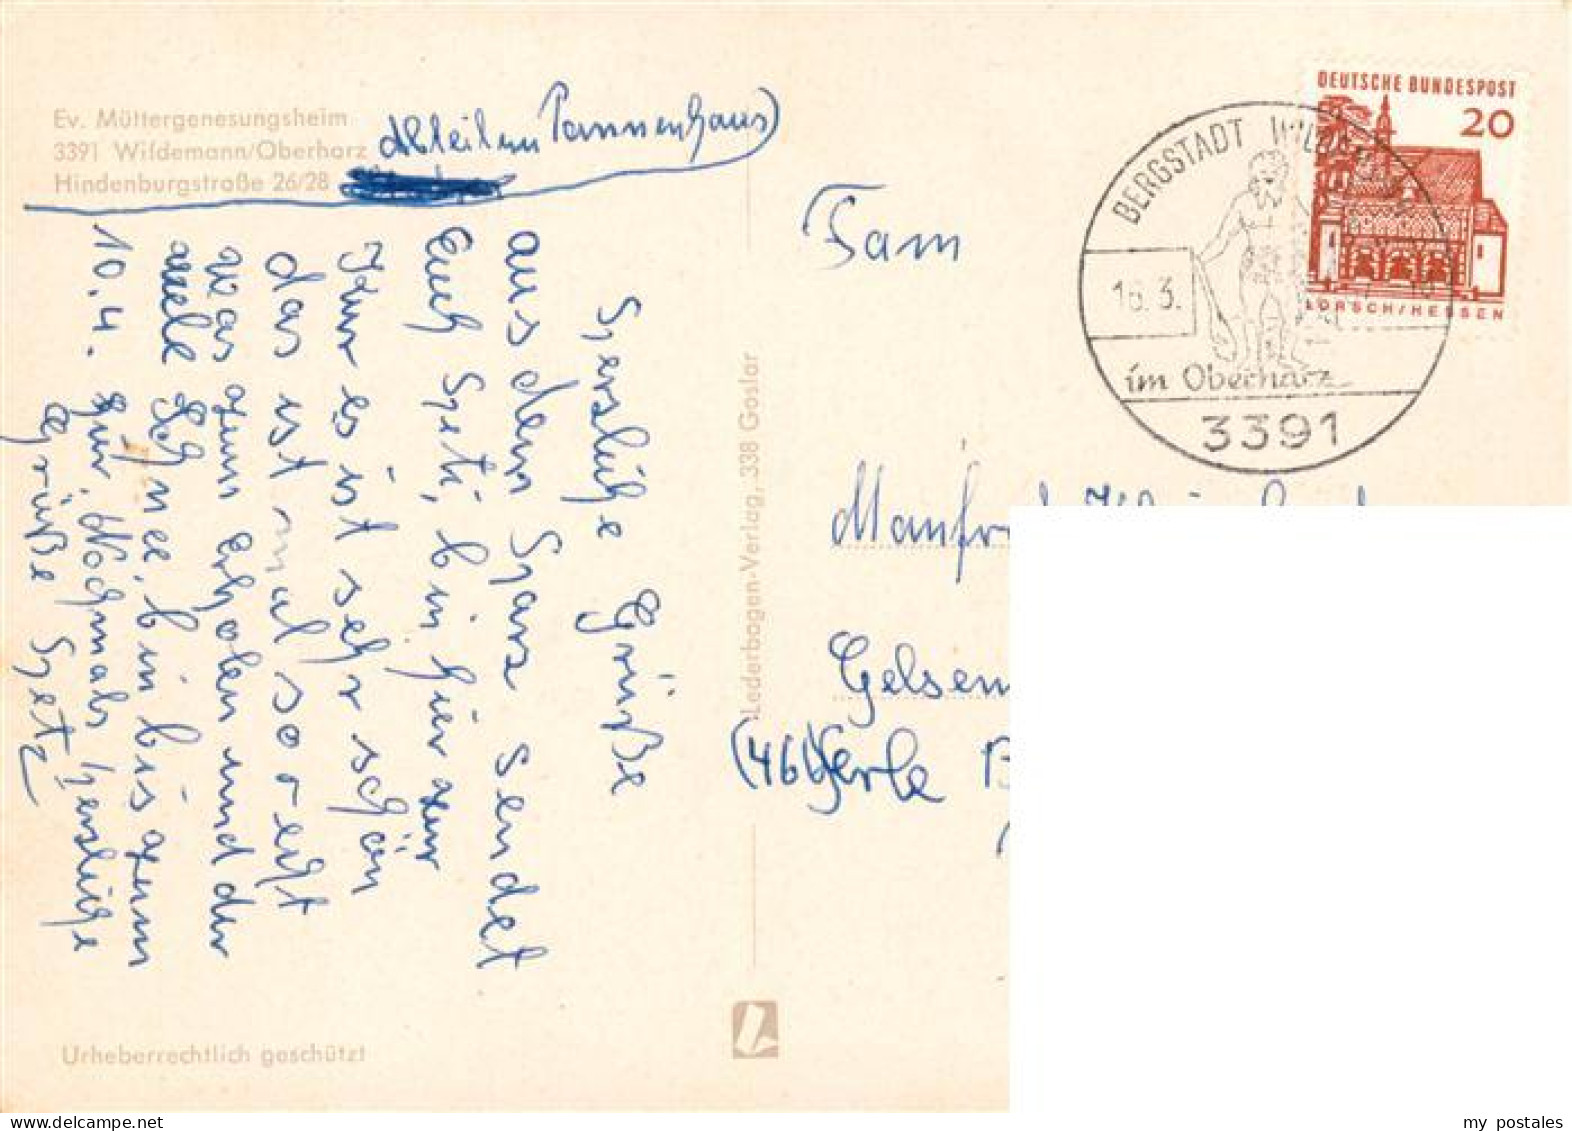 Ev. Müttergenesungsheim
3391 Wildemann/Oberharz
Hindenburgstraße 26/28
Tannenhaus)
Herzliche Grüße
aus dem Harz sendet
Euch Heti, bin hier zur
Kur es ist sehr schön
das ist mal so recht
was zum erholen und der
viele Schnee. bin bis zum
10.4. hier. Nochmals herzliche
Grüße Hetz
Lederbogen-Verlag, 338 Goslar
Urheberrechtlich geschützt
DEUTSCHE BUNDESPOST
20
LORSCH/HESSEN
BERGSTADT WILDEMANN
16.3.
im Oberharz
3391
Fam
Manfred
Gelsen
(466) Erle
my postales